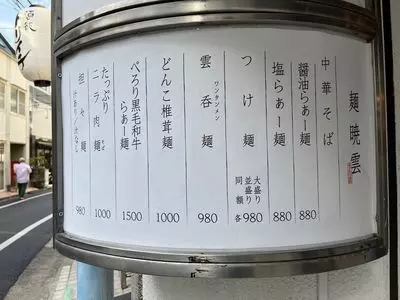 麺 暁雲
中華そば
醤油らぁー麺 880
塩らぁー麺 880
つけ麺 大盛り
並盛り
同額 各980
ワンタンメン
雲呑麺 980
どんこ椎茸麺 1000
ぺろり黒毛和牛
らぁー麺 1500
たっぷり
ニラ肉麺 1000
担々麺
汁あり/汁なし 980